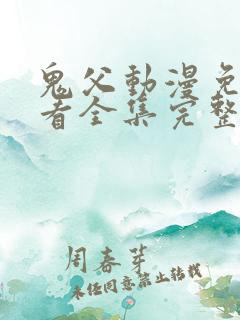 鬼父動漫免
者全集完整
周春芽
未经同意禁止转载